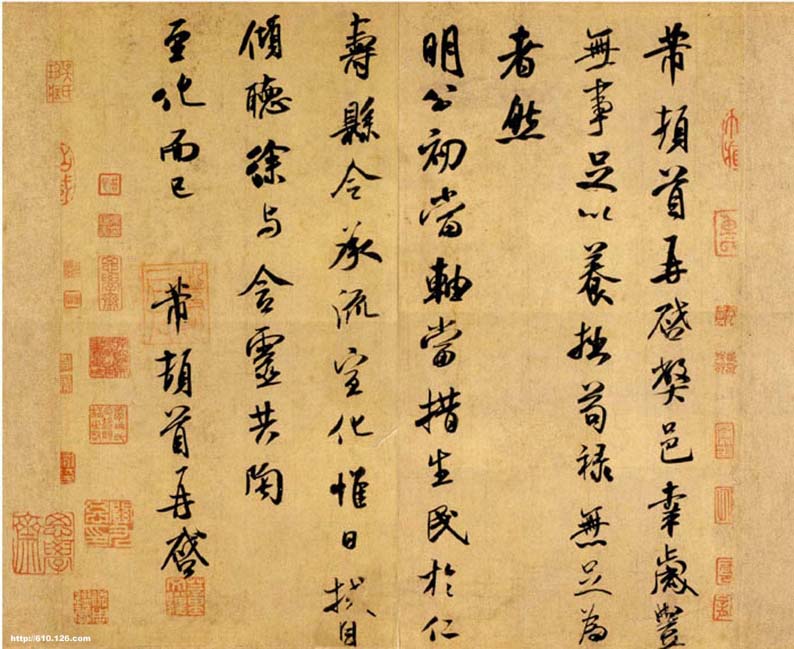 芾頓首再啓弊邑幸歲豐
無事足以養拙苟祿無足爲
者然
明公初當軸當措生民於仁
壽縣令承流宣化惟日拭目
傾聽徐與含靈共陶
至化而已
芾頓首再啓
http://610.126.com